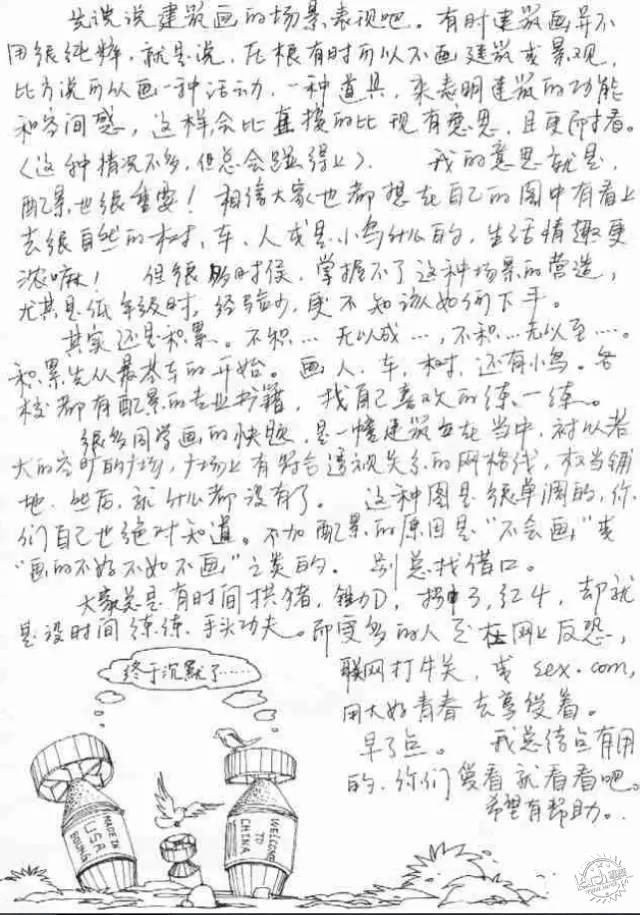 先谈谈建筑画的场景表现吧。有时建筑画并不
用很纯粹，就是说，在根有时可以不画建筑或景观，
比方说可以画一种活动，一种道具，来表明建筑的功能
和空间感，这样会比直接的比现有意思，且更耐看。
（这种情况不多，但总会碰得上）． 我的意思就是，
配景也很重要！相信大家也都想在自己的图中有看上
去很自然的树、车、人或是小鸟什么的，生活情趣更
浓嘛！ 但很多时候，掌握不了这种场景的营造，
尤其是低年级时，经验少，更不知该如何下手。
其实还是积累。不积…无以成…，不积…无以至…。
积累先从最基本的开始。画人、车、树，还有小鸟。各
校都有配景的专业书籍，找自己喜欢的练一练。
很多同学画的快题，是一幢建筑立在当中，衬以若
大的空旷的广场，广场上有符合透视关系的网格线，权当铺
地．然后，就什么都没有了。 这种图是很单调的，你
们自己也绝对知道。不加配景的原因是“不会画，”或
“画的不好不如不画，”之类的． 别总找借口。
大家总是有时间拱猪，锄D，拐3，红4，却就
是没时间练练手头功夫。而更多的人是在网上反恐，
联网打牛关，或sex.com，
用大好青春去享受着。
早了点。 我总结点有用
的，你们爱看就看看吧。
希望有帮助．．
终于沉默了……
MADE IN
USA
BOEING
WELCOME
TO
CHINA